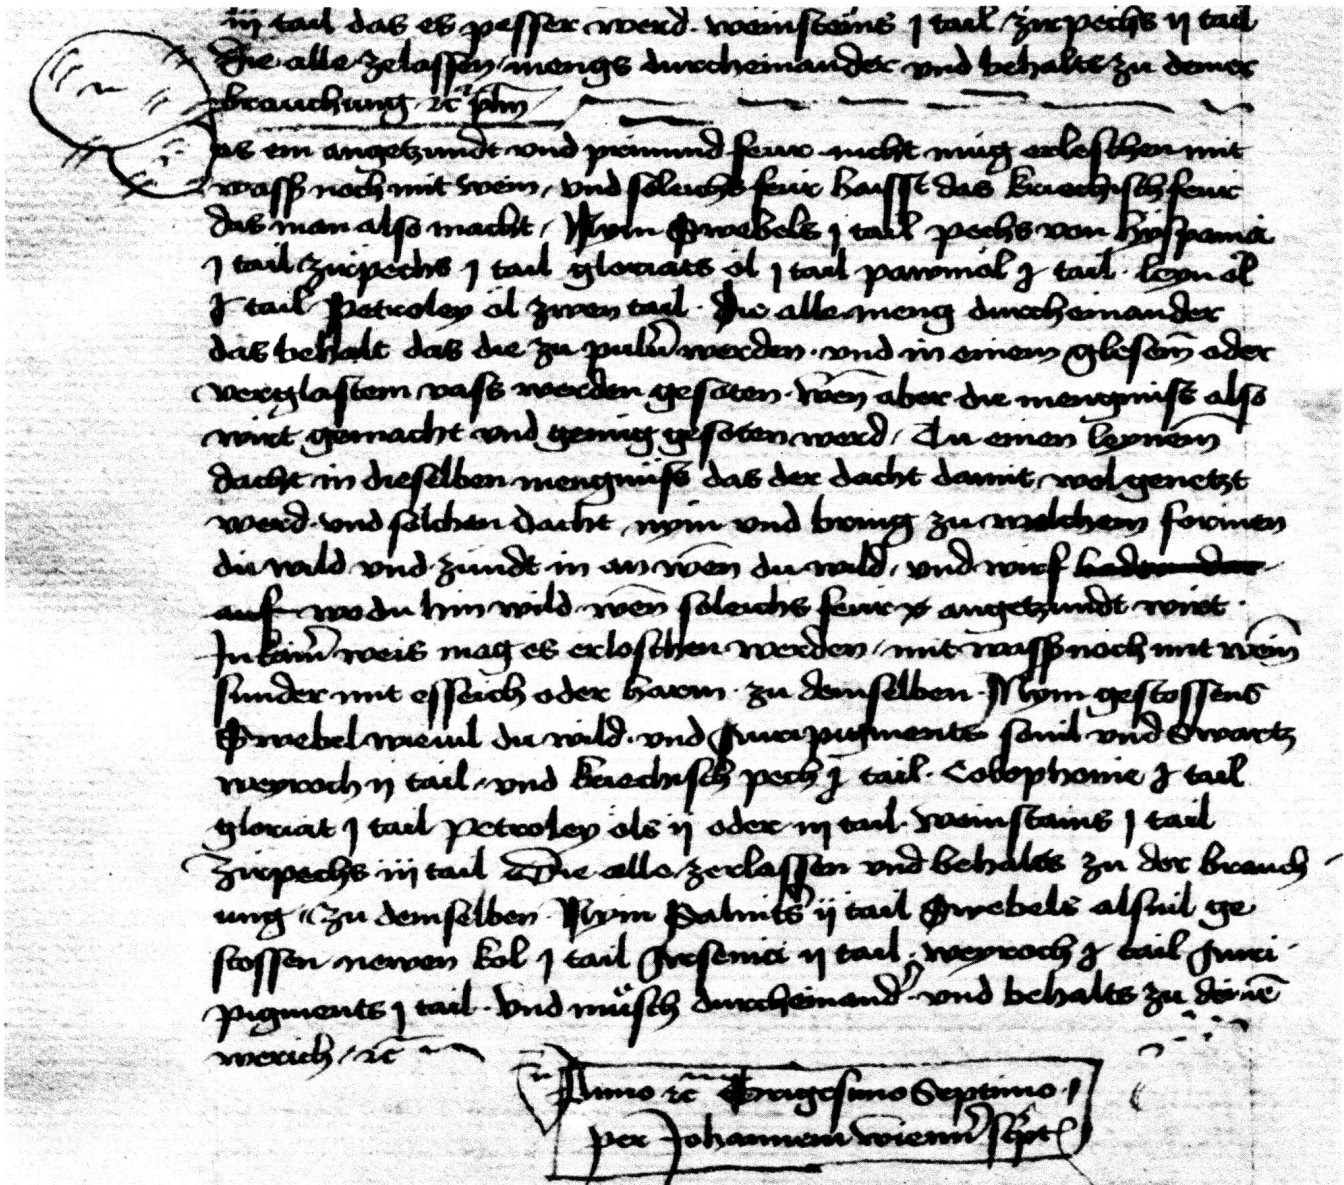 iii tail das es pesser werd. weinsteins j tail zirpechs ij tail
Die alle zelassen mengs durcheinander vnd behalts zu deiner
brauchung ꝛc̄
as ein angetzundt vnd prinnund feur nicht mug erleschen mit
wass noch mit wein / vnd soleichs feur haisst das kriechisch feur
das man also macht / Nym Swebels j tail pechs von hyspania
j tail zirpechs j tail gloriats öl j tail pawmöl j tail . leynöl
j tail Petroley öl zwen tail . Die alle meng durcheinander
das behalt das die zu pulu̅ werden . vnd in einem glesem̄ oder
verglastem vass werden gesoten . wen̄ aber die mengnuss also
wirt gemacht vnd genug gesoten werd / Tu einen leynem̄
dacht in dieselben mengnuss das der dacht damit wol genetzt
werd . vnd solchen dacht nym vnd bring zu welchem formen
du wild vnd zundt in an wen̄ du wild / vnd wirf
auf wo du hin wild wen̄ soleichs feur angetzundt wirt .
In kain̄ weis mag es erloschen werden / mit wass noch mit wein̄
sunder mit esseich oder harm . zu demselben . Nym gestossens
Swebel wieuil du wild . vnd Auripigments souil vnd Swartz
weyroch ij tail / vnd kriechisch pech j tail . Colophonie j tail
gloriat j tail Petroley öls ij oder iij tail . weinstains j tail
zirpechs iij tail Die alle zerlassen vnd behalts zu der brauch
ung / Zu demselben . Nym Salnits ij tail Swebels alsuil ge
stossen newen kol j tail Arsenici ij tail . weyroch j tail Auri
pigments j tail . Vnd müsch durcheinand̕ . vnd behalts zu dei ne
werich / ꝛc̄
Anno ꝛc̄ Trigesimo Septimo .
per Johannem wienn̄ script